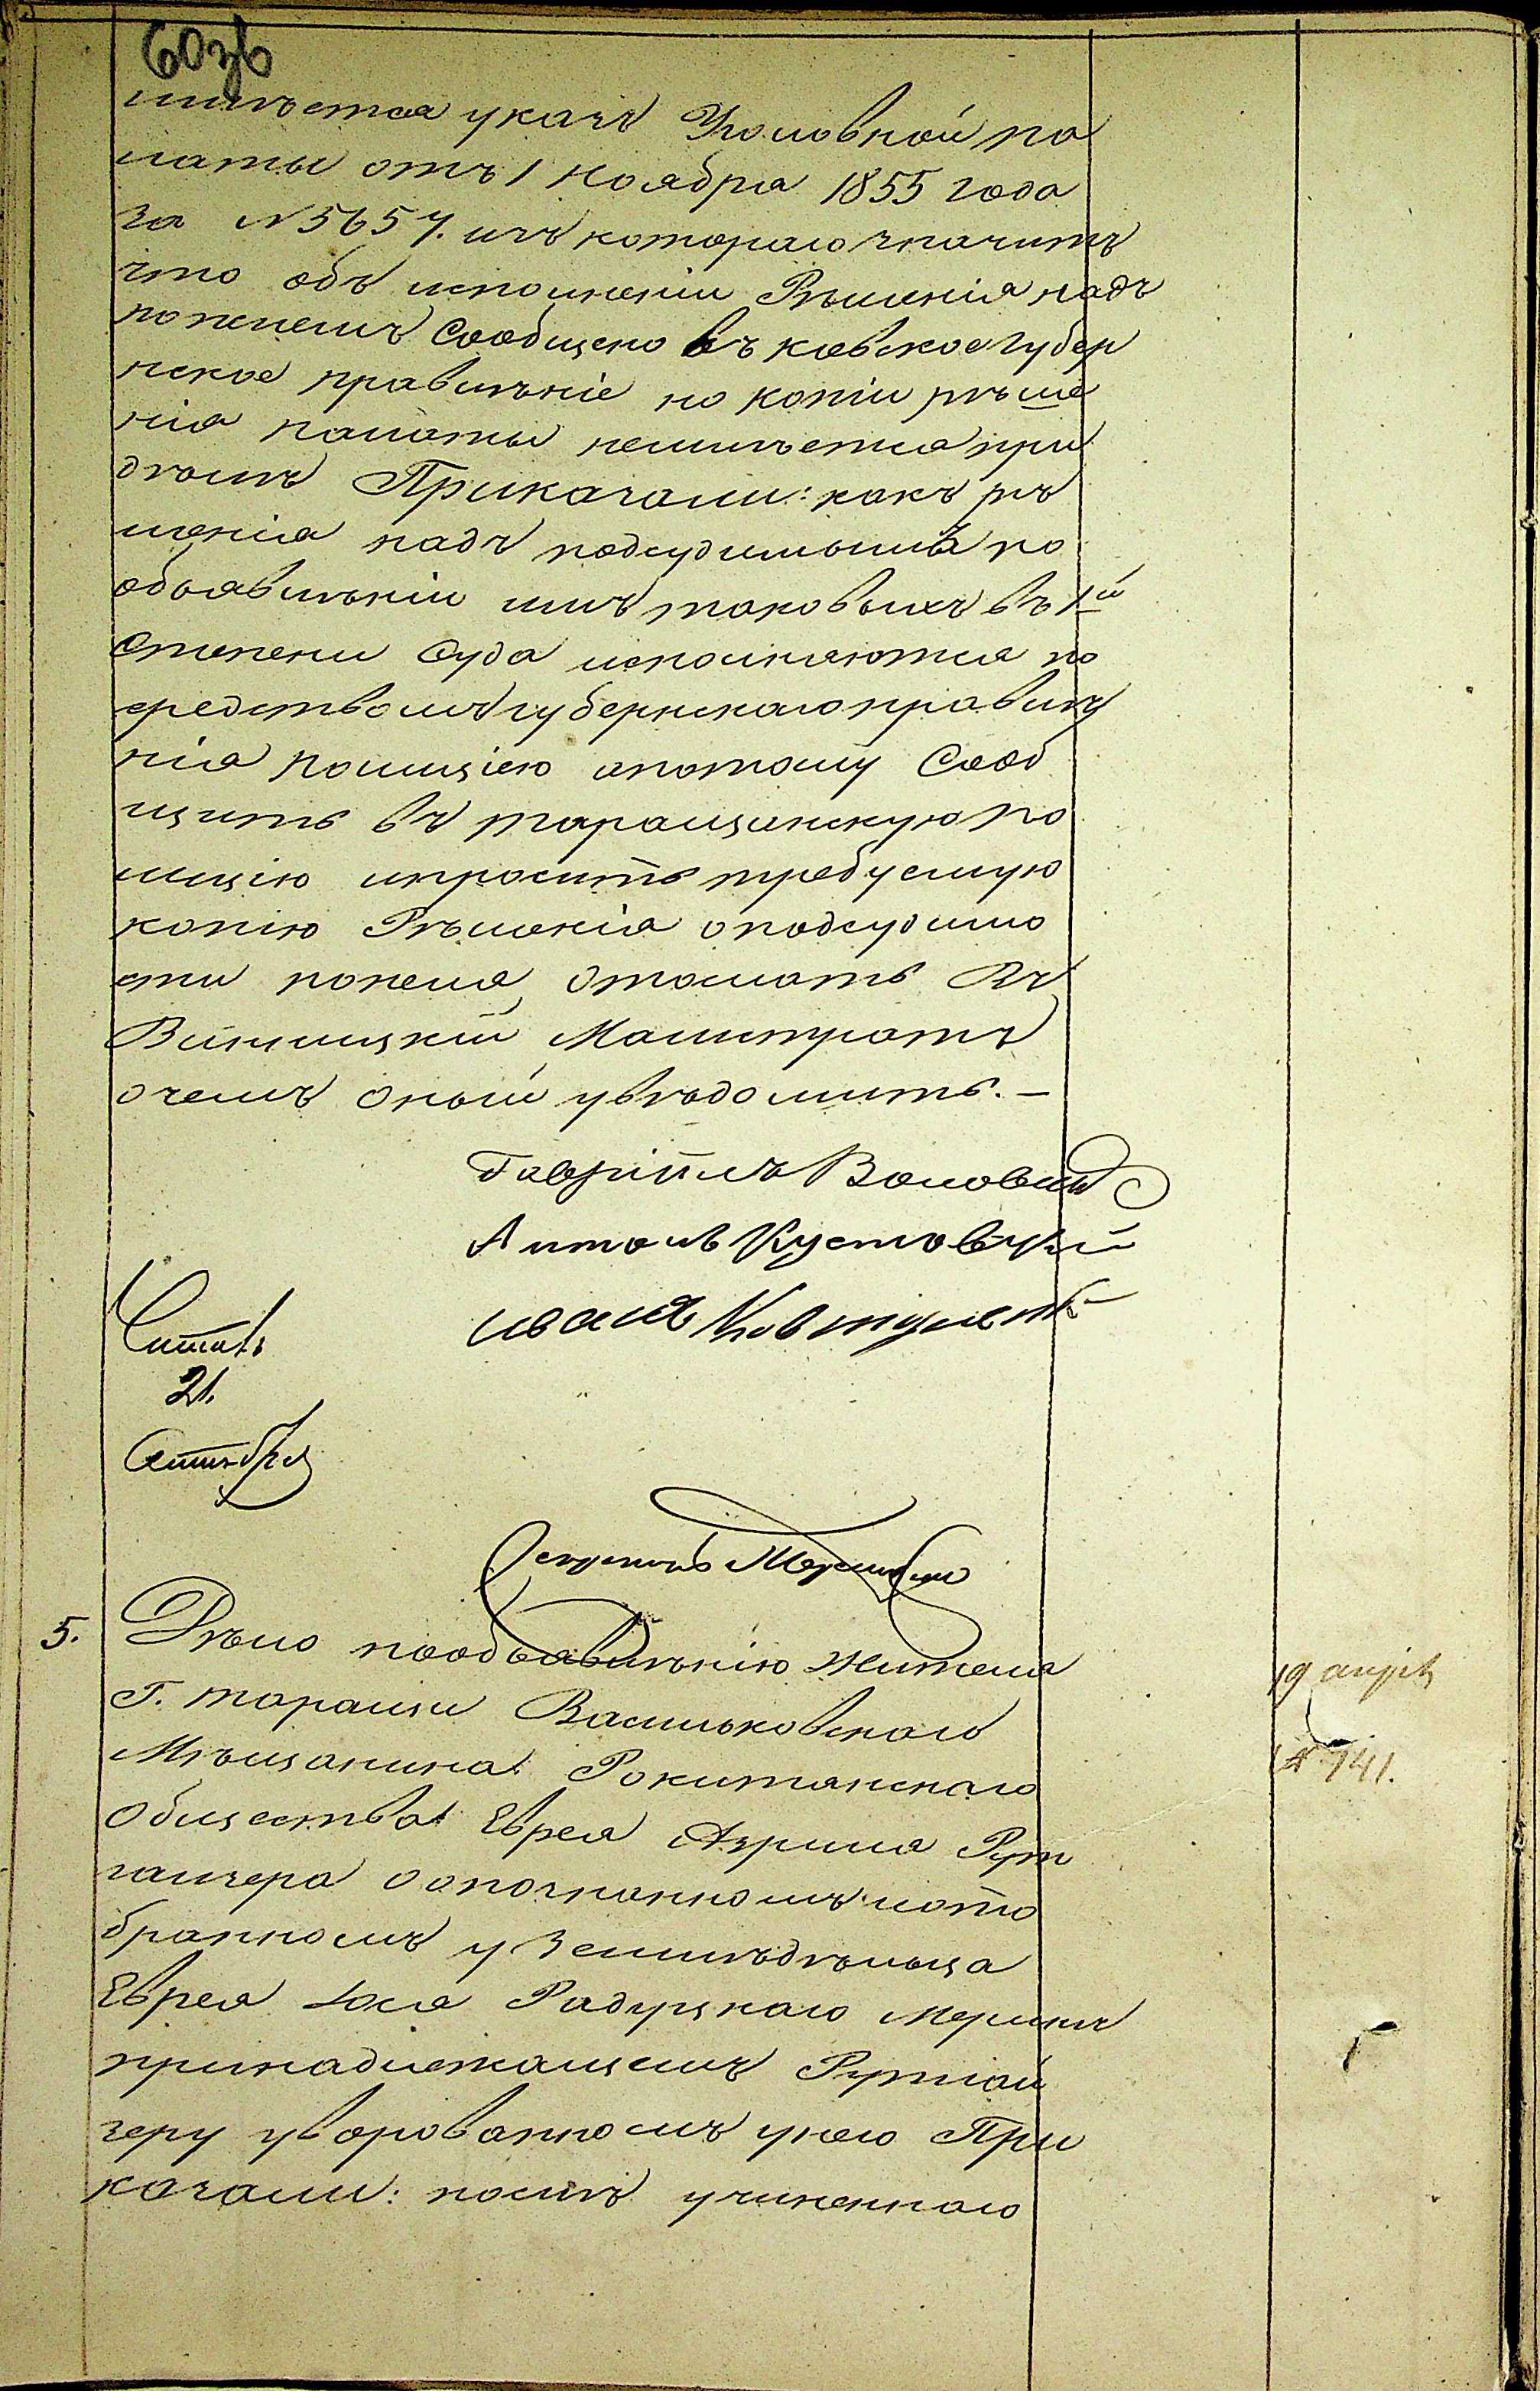 имѣется указъ Уголовной па
латы отъ 1 Ноября 1855 года
за №5657. изъ котораго значитъ
что объ исполненіи Рѣшенія надъ
Сообщено въ кіевское губер
нское правилѣніе но копіи рѣше
нія палаты неимѣется при
дѣлѣ Приказали: какъ рѣ
шенія надъ подсудимыми по
объявилѣніи имъ таковыхъ въ 1й
степени Суда исполняются по
средствомъ губернскаго правилѣ
нія полиціею апотому Сооб
щить въ таращанскую по
лицію ипросить требуемую
копію Рѣшенія оподсудимо
сти отослать Въ
Винницкій Магистратъ
очемъ оный увѣдомить. —
Гавріилъ
Антонъ Кустовскій
Иванъ Ковтуненко
Читалъ
21.
Октября
5. Дѣло пообъявилѣнію жителя
Г. таращи Васильковскаго
Мѣщанина Рокитянскаго
Общества Еврея Азриля Рут
гайзера оопознанномъ иото
бранномъ у Землѣдѣльца
Еврея Іося Радуцкаго Меринѣ
принадлежащемъ Рутгай
зеру уворованномъ унего При
казали: послѣ учиненнаго
19 апрѣл
№ 741.